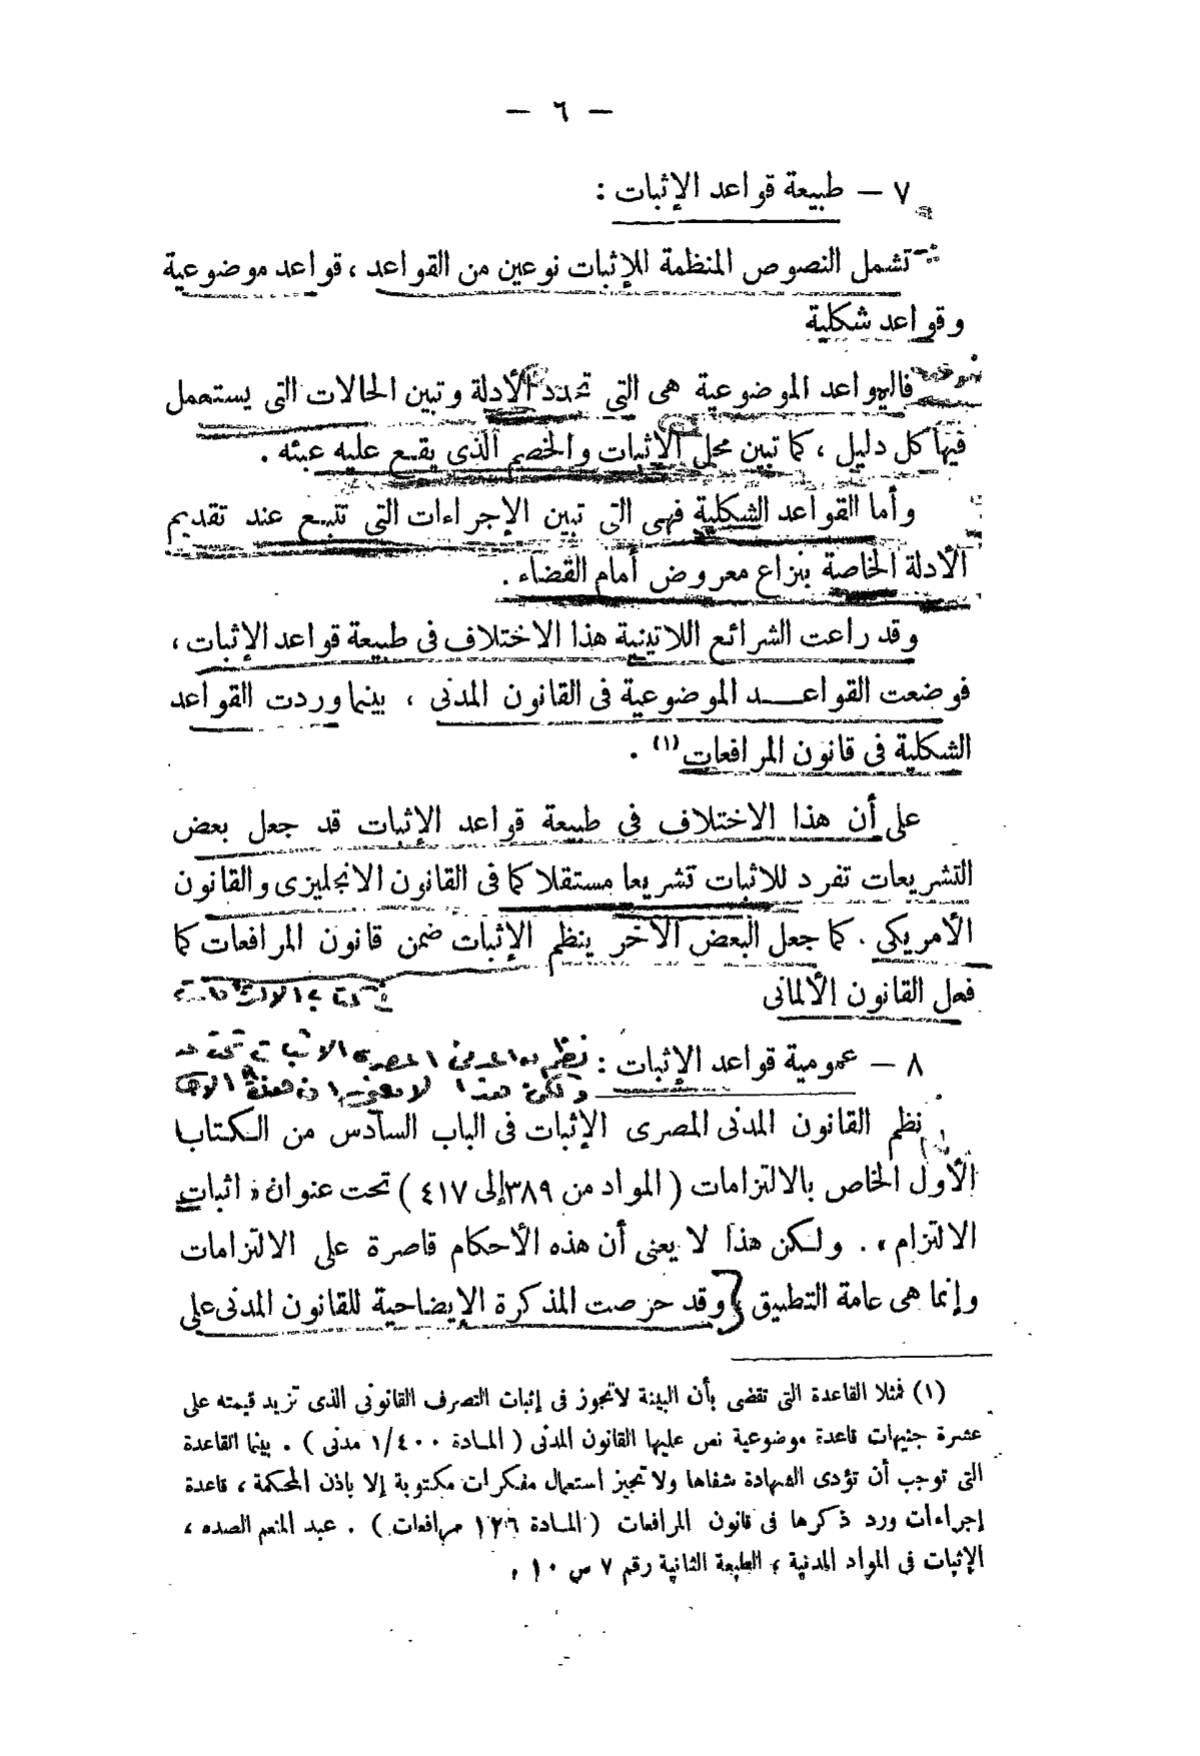 — ٦ —
٧ — طبيعة قواعد الإثبات :
تشمل النصوص المنظمة للإثبات نوعين من القواعد ، قواعد موضوعية
وقواعد شكلية
فالقواعد الموضوعية هى التى تحدد الأدلة وتبين الحالات التى يستعمل
فيها كل دليل ، كما تبين محل الاثبات والخصم الذى يقع عليه عبئه .
وأما القواعد الشكلية فهى التى تبين الإجراءات التى تتبع عند تقديم
الأدلة الخاصة بنزاع معروض أمام القضاء .
وقد راعت الشرائع اللاتينية هذا الاختلاف فى طبيعة قواعد الإثبات ،
فوضعت القواعد الموضوعية فى القانون المدنى ، بينما وردت القواعد
الشكلية فى قانون المرافعات (١) .
على أن هذا الاختلاف فى طبيعة قواعد الإثبات قد جعل بعض
التشريعات تفرد للاثبات تشريعا مستقلا كما فى القانون الانجليزى والقانون
الأمريكى . كما جعل البعض الآخر ينظم الإثبات ضمن قانون المرافعات كما
فعل القانون الألمانى
٨ — عمومية قواعد الإثبات : نظم المدنى المصرى الاثبات تحت
ولكن هذا لا يعنى ان هذه
نظم القانون المدنى المصرى الإثبات فى الباب السادس من الكتاب
الأول الخاص بالالتزامات ( المواد من ٣٨٩ إلى ٤١٧ ) تحت عنوان « اثبات
الالتزام » . ولكن هذا لا يعنى أن هذه الأحكام قاصرة على الالتزامات
وإنما هى عامة التطبيق وقد حرصت المذكرة الإيضاحية للقانون المدنى على
(١) فمثلا القاعدة التى تقضى بأن البينة لا تجوز فى إثبات التصرف القانونى الذى تزيد قيمته على
عشرة جنيهات قاعدة موضوعية نص عليها القانون المدنى ( المادة ١/٤٠٠ مدنى ) . بينما القاعدة
التى توجب أن تؤدى الشهادة شفاها ولا تجيز استعمال مفكرات مكتوبة إلا باذن المحكمة ، قاعدة
إجراءات ورد ذكرها فى قانون المرافعات ( المادة ١٢٦ مرافعات ) . عبد المنعم الصده ،
الإثبات فى المواد المدنية ، الطبعة الثانية رقم ٧ س ١٠ .